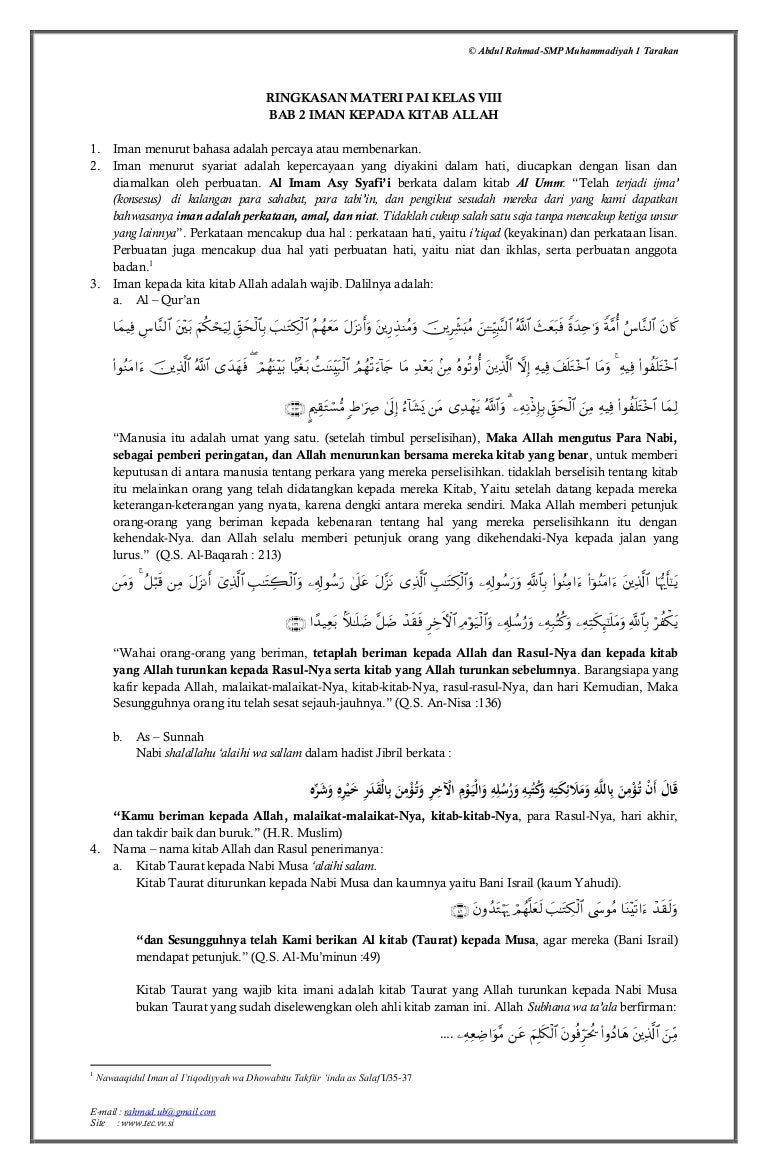 © Abdul Rahmad-SMP Muhammadiyah 1 Tarakan
RINGKASAN MATERI PAI KELAS VIII
BAB 2 IMAN KEPADA KITAB ALLAH
1. Iman menurut bahasa adalah percaya atau membenarkan.
2. Iman menurut syariat adalah kepercayaan yang diyakini dalam hati, diucapkan dengan lisan dan
diamalkan oleh perbuatan. Al Imam Asy Syafi’i berkata dalam kitab Al Umm: “Telah terjadi ijma’
(konsesus) di kalangan para sahabat, para tabi’in, dan pengikut sesudah mereka dari yang kami dapatkan
bahwasanya iman adalah perkataan, amal, dan niat. Tidaklah cukup salah satu saja tanpa mencakup ketiga unsur
yang lainnya”. Perkataan mencakup dua hal : perkataan hati, yaitu i’tiqad (keyakinan) dan perkataan lisan.
Perbuatan juga mencakup dua hal yati perbuatan hati, yaitu niat dan ikhlas, serta perbuatan anggota
badan.1
3. Iman kepada kita kitab Allah adalah wajib. Dalilnya adalah:
a. Al – Qur’an
كَانَ ٱلنَّاسُ أُمَّةً وَٰحِدَةً فَبَعَثَ ٱللَّهُ ٱلنَّبِيِّـۧنَ مُبَشِّرِينَ وَمُنذِرِينَ وَأَنزَلَ مَعَهُمُ ٱلْكِتَٰبَ بِٱلْحَقِّ لِيَحْكُمَ بَيْنَ ٱلنَّاسِ فِيمَا
ٱخْتَلَفُوا۟ فِيهِ ۚ وَمَا ٱخْتَلَفَ فِيهِ إِلَّا ٱلَّذِينَ أُوتُوهُ مِنۢ بَعْدِ مَا جَآءَتْهُمُ ٱلْبَيِّنَٰتُ بَغْيًۢا بَيْنَهُمْ ۖ فَهَدَى ٱللَّهُ ٱلَّذِينَ ءَامَنُوا۟
لِمَا ٱخْتَلَفُوا۟ فِيهِ مِنَ ٱلْحَقِّ بِإِذْنِهِۦ ۗ وَٱللَّهُ يَهْدِى مَن يَشَآءُ إِلَىٰ صِرَٰطٍ مُّسْتَقِيمٍ
“Manusia itu adalah umat yang satu. (setelah timbul perselisihan), Maka Allah mengutus Para Nabi,
sebagai pemberi peringatan, dan Allah menurunkan bersama mereka kitab yang benar, untuk memberi
keputusan di antara manusia tentang perkara yang mereka perselisihkan. tidaklah berselisih tentang kitab
itu melainkan orang yang telah didatangkan kepada mereka Kitab, Yaitu setelah datang kepada mereka
keterangan-keterangan yang nyata, karena dengki antara mereka sendiri. Maka Allah memberi petunjuk
orang-orang yang beriman kepada kebenaran tentang hal yang mereka perselisihkann itu dengan
kehendak-Nya. dan Allah selalu memberi petunjuk orang yang dikehendaki-Nya kepada jalan yang
lurus.” (Q.S. Al-Baqarah : 213)
يَٰٓأَيُّهَا ٱلَّذِينَ ءَامَنُوٓا۟ ءَامِنُوا۟ بِٱللَّهِ وَرَسُولِهِۦ وَٱلْكِتَٰبِ ٱلَّذِى نَزَّلَ عَلَىٰ رَسُولِهِۦ وَٱلْكِتَٰبِ ٱلَّذِىٓ أَنزَلَ مِن قَبْلُ ۚ وَمَن
يَكْفُرْ بِٱللَّهِ وَمَلَٰٓئِكَتِهِۦ وَكُتُبِهِۦ وَرُسُلِهِۦ وَٱلْيَوْمِ ٱلْءَاخِرِ فَقَدْ ضَلَّ ضَلَٰلًۢا بَعِيدًا
“Wahai orang-orang yang beriman, tetaplah beriman kepada Allah dan Rasul-Nya dan kepada kitab
yang Allah turunkan kepada Rasul-Nya serta kitab yang Allah turunkan sebelumnya. Barangsiapa yang
kafir kepada Allah, malaikat-malaikat-Nya, kitab-kitab-Nya, rasul-rasul-Nya, dan hari Kemudian, Maka
Sesungguhnya orang itu telah sesat sejauh-jauhnya.” (Q.S. An-Nisa :136)
b. As – Sunnah
Nabi shalallahu ‘alaihi wa sallam dalam hadist Jibril berkata :
قَالَ أَنْ تُؤْمِنَ بِاللَّهِ وَمَلَائِكَتِهِ وَكُتُبِهِ وَرُسُلِهِ وَالْيَوْمِ الْآخِرِ وَتُؤْمِنَ بِالْقَدَرِ خَيْرِهِ وَشَرِّهِ
“Kamu beriman kepada Allah, malaikat-malaikat-Nya, kitab-kitab-Nya, para Rasul-Nya, hari akhir,
dan takdir baik dan buruk.” (H.R. Muslim)
4. Nama – nama kitab Allah dan Rasul penerimanya:
a. Kitab Taurat kepada Nabi Musa ‘alaihi salam.
Kitab Taurat diturunkan kepada Nabi Musa dan kaumnya yaitu Bani Israil (kaum Yahudi).
وَلَقَدْ ءَاتَيْنَا مُوسَى ٱلْكِتَٰبَ لَعَلَّهُمْ يَهْتَدُونَ
“dan Sesungguhnya telah Kami berikan Al kitab (Taurat) kepada Musa, agar mereka (Bani Israil)
mendapat petunjuk.” (Q.S. Al-Mu’minun :49)
Kitab Taurat yang wajib kita imani adalah kitab Taurat yang Allah turunkan kepada Nabi Musa
bukan Taurat yang sudah diselewengkan oleh ahli kitab zaman ini. Allah Subhana wa ta’ala berfirman:
مِّنَ ٱلَّذِينَ هَادُوا۟ يُحَرِّفُونَ ٱلْكَلِمَ عَن مَّوَاضِعِهِۦ ....
1 Nawaaqidul Iman al I’tiqodiyyah wa Dhowabitu Takfiir ‘inda as Salaf I/35-37
E-mail : rahmad.ub@gmail.com
Site : www.tec.vv.si